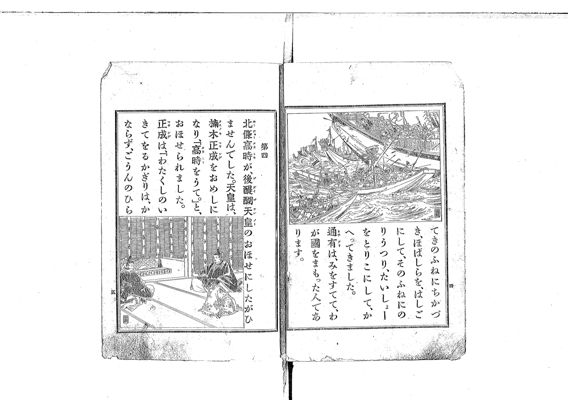 てきのふねにちかづ
き、ほばしらを、はしご
にして、そのふねにの
りうつり、たいしょー
をとりこにして、か
へってきました。
通有は、みをすてて、わ
が國をまもった人であ
ります。
四
第四
北條高時が、後醍醐天皇のおほせにしたがひ
ませんでした。天皇は、
楠木正成をおめしに
なり、「高時をうて。」と、
おほせられました。
正成は、「わたくしのい
きてをるかぎりは、か
ならず、ごうんのひら
五